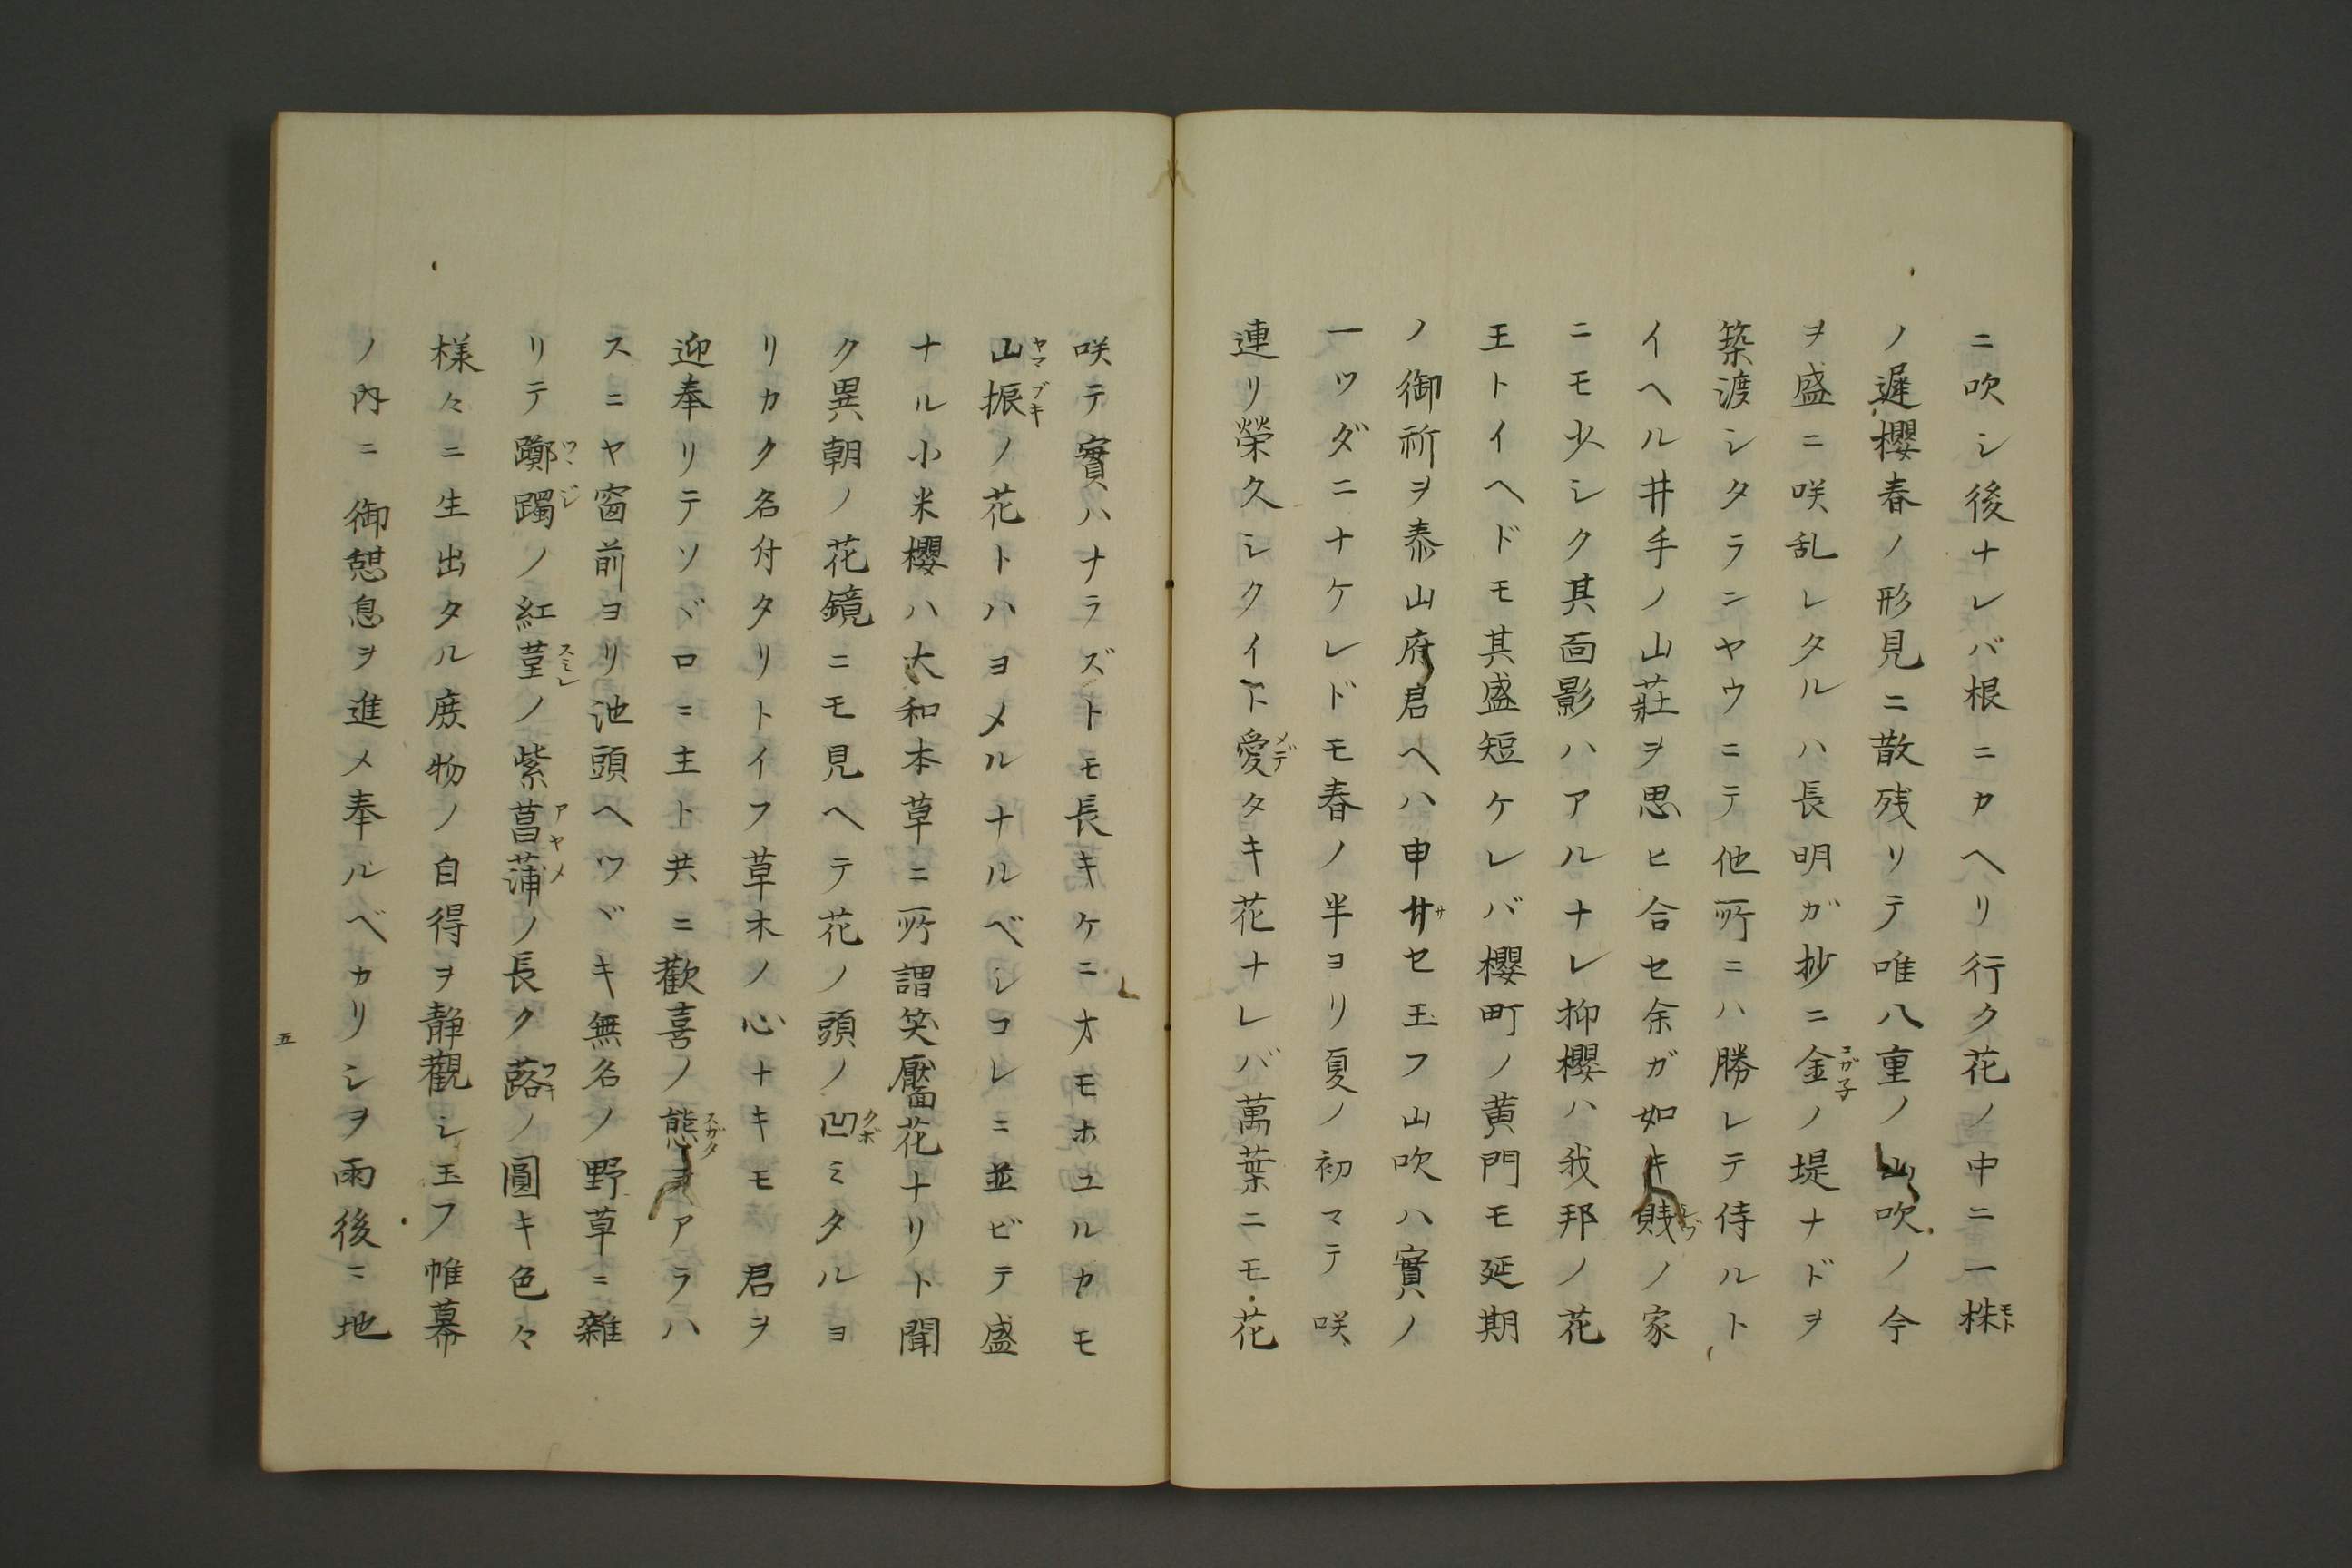 ニ吹シ後ナレバ根ニカヘリ行ク花ノ中ニ一株モト
ノ遅櫻春ノ形見ニ散残リテ唯八重ノ山吹ノ今
ヲ盛ニ咲乱レタルハ長明ガ抄ニ金コガ子ノ堤ナドヲ
築渡シタランヤウニテ他所ニハ勝レテ侍ルト
イヘル井手ノ山莊ヲ思ヒ合セ余ガ如キ賎シヅノ家
ニモ少シク其面影ハアルナレ抑櫻ハ我邦ノ花
王トイヘドモ其盛短ケレバ櫻町ノ黄門モ延期
ノ御祈ヲ泰山府君ヘハ申サセ玉フ山吹ハ實ノ
一ツダニナケレドモ春ノ半ヨリ夏ノ初マテ咲、
連リ榮久シクイト愛メデタキ花ナレバ萬葉ニモ花
咲テ實ハナラズトモ長キケニオモホユルカモ
山振ヤマブキノ花トハヨメルナルベシコレニ並ビテ盛
ナル小米櫻ハ大和本草ニ所謂笑靨花ナリト聞
ク異朝ノ花鏡ニモ見ヘテ花ノ頭ノ凹クボミタルヨ
リカク名付タリトイフ草木ノ心ナキモ君ヲ
迎奉リテソゾロニ主ト共ニ歡喜ノ態スガタヲアラハ
スニヤ窗前ヨリ池頭ヘツヾキ無名ノ野草ニ雜
リテ躑躅ツヽジノ紅菫スミレノ紫菖蒲アヤメノ長ク蕗フキノ圓キ色々
様々ニ生出タル庶物ノ自得ヲ靜觀シ玉フ帷幕
ノ内ニ御憩息ヲ進メ奉ルベカリシヲ雨後ニ地
五